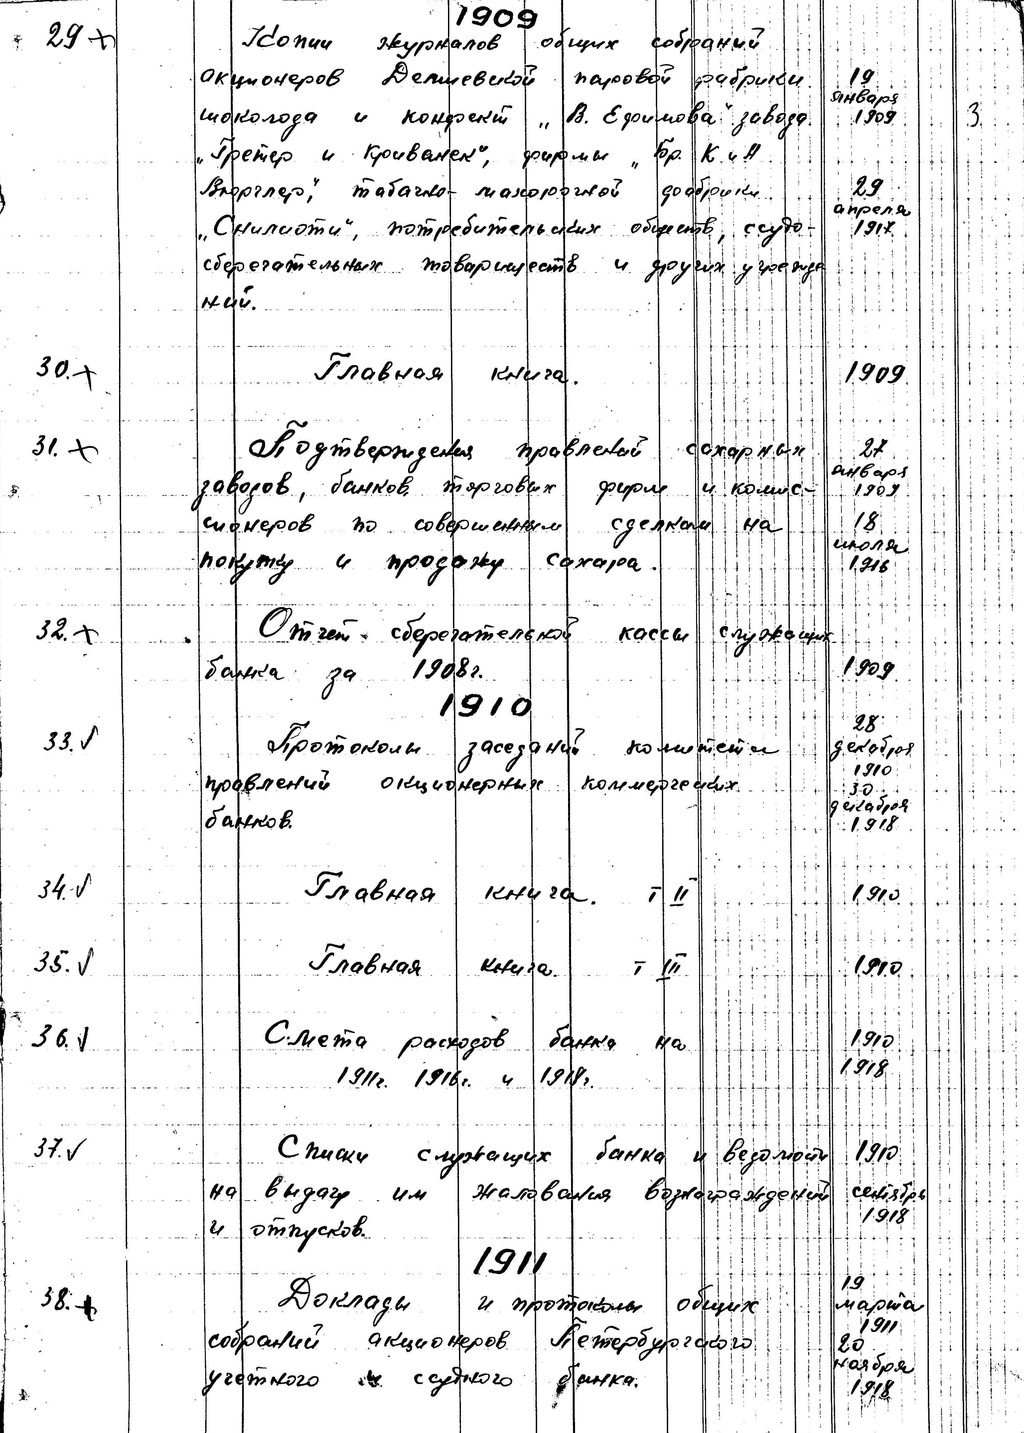 1909
29 + Копии журналов общих собраний
акционеров Демиевской паровой фабрики 19
января
шоколада и конфект „В. Ефимова" завода 1909 3.
„Гретер и Криванек", фирмы „Бр. К и Н
Вюрглер," табачно-махорочной фабрики 29
апреля
„Снилиоти", потребительских обществ, ссудо- 1917
сберегательных товариществ и других учрежде
ний.
30. + Главная книга. 1909
31. + Подтверждения правлений сахарных 27
января
заводов, банков, торговых фирм и комис- 1909
сионеров по совершенным сделкам на 18
июля
покупку и продажу сахара. 1916
32. + Отчет сберегательной кассы служащих
банка за 1908г. 1909
1910
28
33. √ Протоколы заседаний комитета декабря
1910
правлений акционерных коммерческих 30
декабря
банков. 1918
34. √ Главная книга. т II 1910
35. √ Главная книга т III 1910
36. √ Смета расходов банка на 1910
1911г. 1916г. и 1918г. 1918
37. √ Списки служащих банка и ведомости 1910
на выдачу им жалования вознаграждений сентябрь
1918
и отпусков.
1911
19
38. + Доклады и протоколы общих марта
1911
собраний акционеров Петербургского 20
ноября
учетного и ссудного банка. 1918